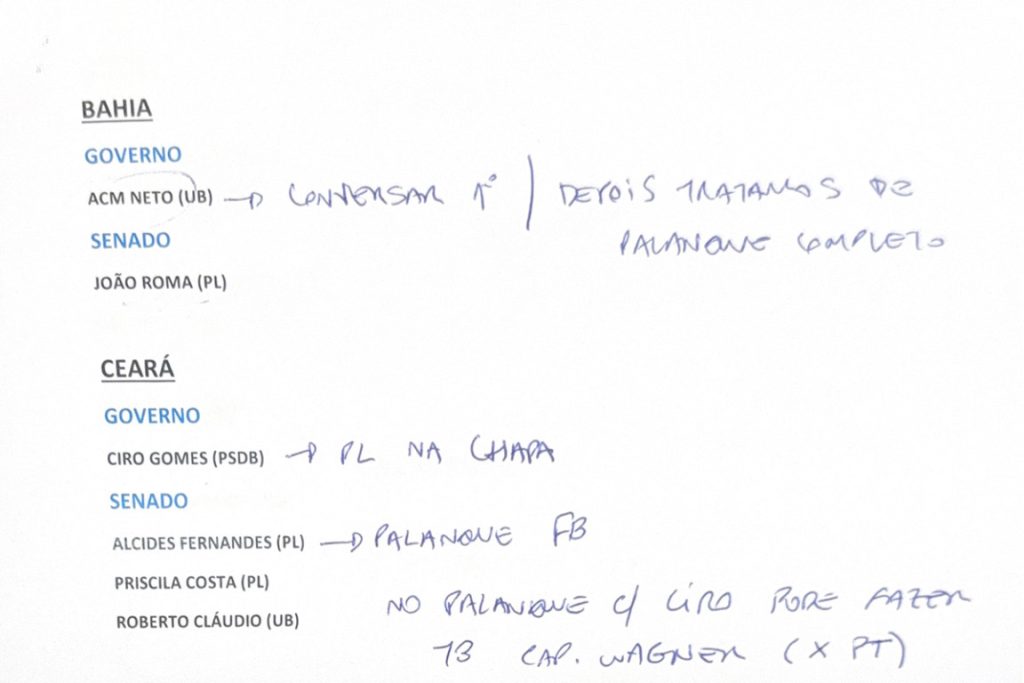 BAHIA
GOVERNO
ACM NETO (UB) → CONVERSAR 1º | DEPOIS TRATAMOS DE
PALANQUE COMPLETO
SENADO
JOÃO ROMA (PL)
CEARÁ
GOVERNO
CIRO GOMES (PSDB) → PL NA CHAPA
SENADO
ALCIDES FERNANDES (PL) → PALANQUE FB
PRISCILA COSTA (PL)
NO PALANQUE C/ CIRO PODE FAZER
ROBERTO CLÁUDIO (UB)
13 CAP. WAGNER (X PT)